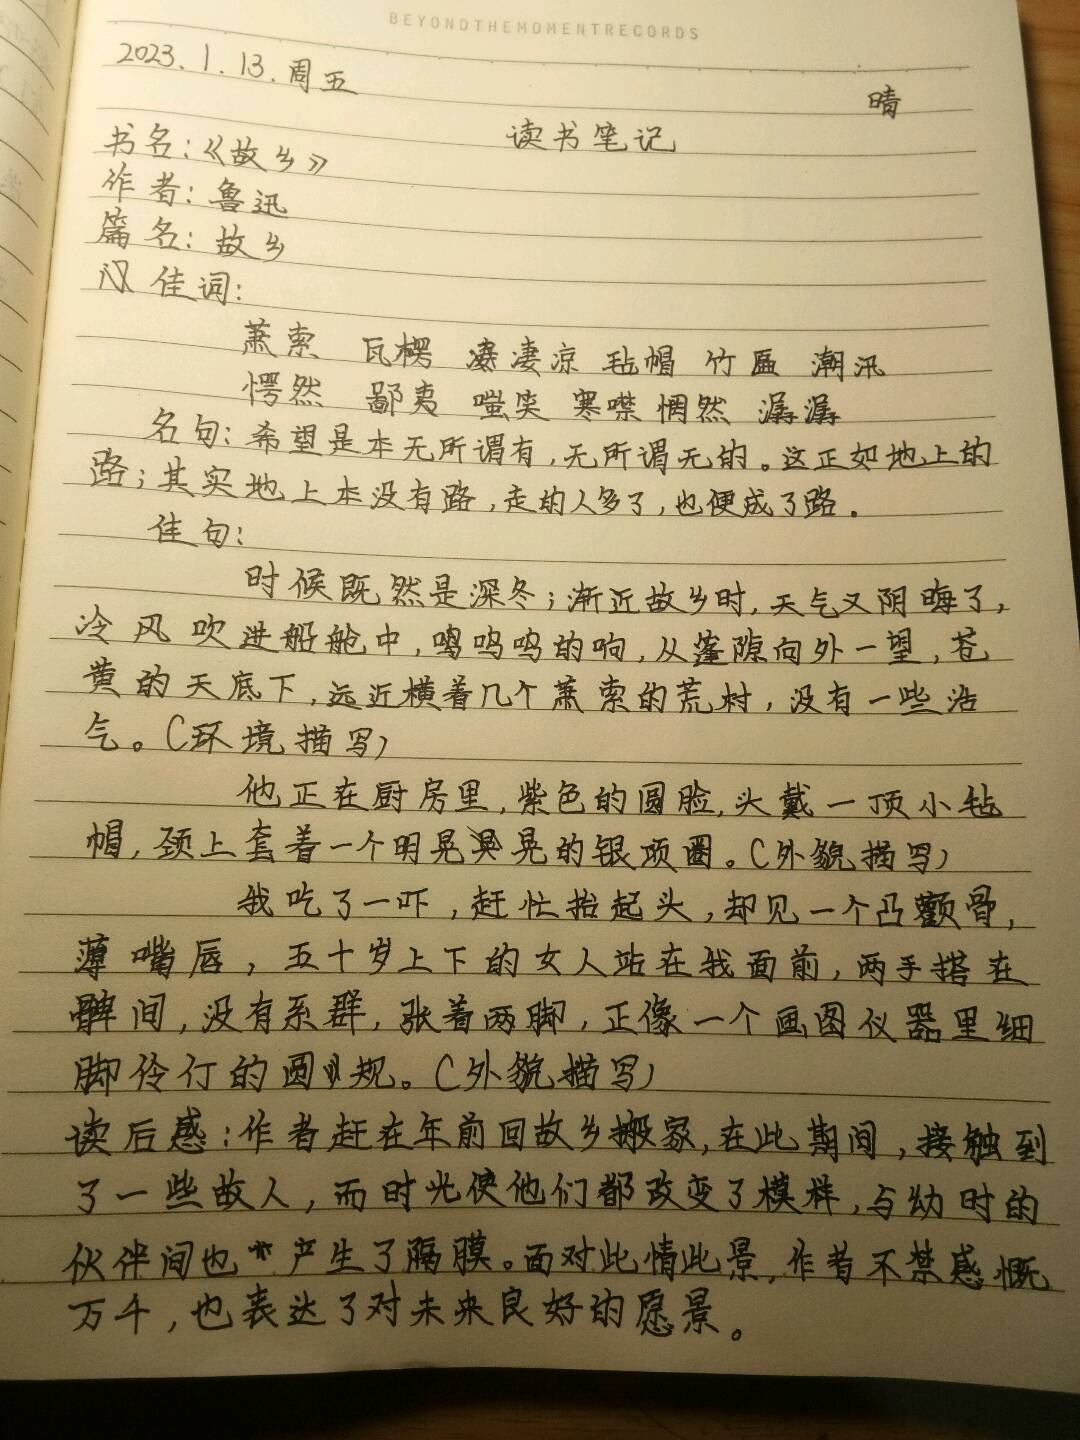 BEYONDTHEMOMENTRECORDS
2023.1.13.周五
晴
读书笔记
书名:《故乡》
作者:鲁迅
篇名:故乡
佳词:
萧索 瓦楞 凄凉 毡帽 竹匾 潮汛
愕然 鄙夷 嗤笑 寒噤 惘然 潺潺
名句:希望是本无所谓有,无所谓无的。这正如地上的
路;其实地上本没有路,走的人多了,也便成了路。
佳句:
时候既然是深冬;渐近故乡时,天气又阴晦了,
冷风吹进船舱中,呜呜呜的响,从蓬隙向外一望,苍
黄的天底下,远近横着几个萧索的荒村,没有一些活
气。(环境描写)
他正在厨房里,紫色的圆脸,头戴一顶小毡
帽,颈上套着一个明晃晃的银项圈。(外貌描写)
我吃了一吓,赶忙抬起头,却见一个凸颧骨,
薄嘴唇,五十岁上下的女人站在我面前,两手搭在
髀间,没有系群,张着两脚,正像一个画图仪器里细
脚伶仃的圆规。(外貌描写)
读后感:作者赶在年前回故乡搬家,在此期间,接触到
了一些故人,而时光使他们都改变了模样,与幼时的
伙伴间也产生了隔膜。面对此情此景,作者不禁感慨
万千,也表达了对未来良好的愿景。